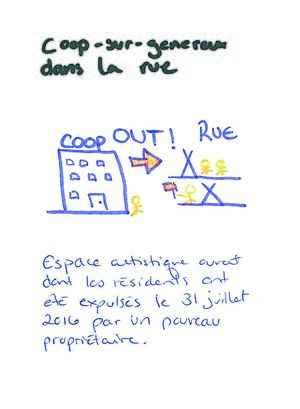 Coop-sur-genereux
dans la rue
COOP OUT! RUE
Espace artistique ouvert
dont les résidents ont
été expulsés le 31 juillet
2016 par un nouveau
propriétaire.